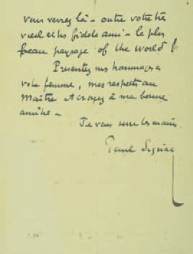 vous verrez là - outre votre très
vieil et très fidèle ami - le plus
beau paysage of the world !
Presentez mes hommages a
votre femme, mes respects au
Maître et croyez à ma bonne
amitié -
Je vous serre les mains
Paul Signac